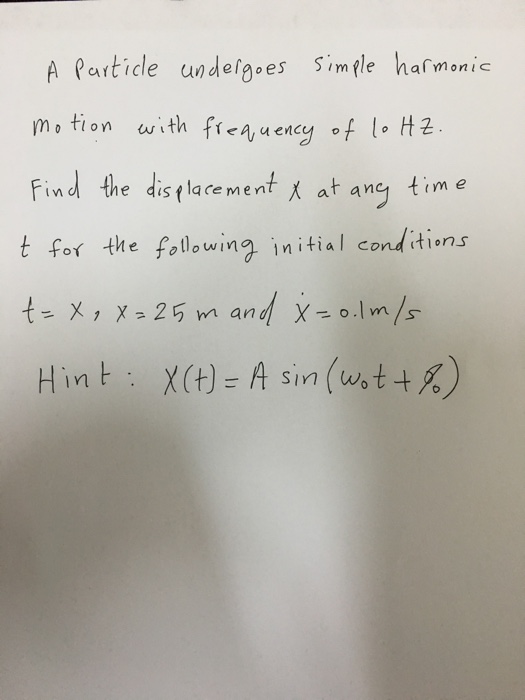 A Particle undergoes simple harmonic
motion with frequency of 10 HZ.
Find the displacement x at any time
t for the following initial conditions
t = x, x = 25 m and ẋ = 0.1m/s
Hint: X(t) = A sin (ω₀t + φ₀)